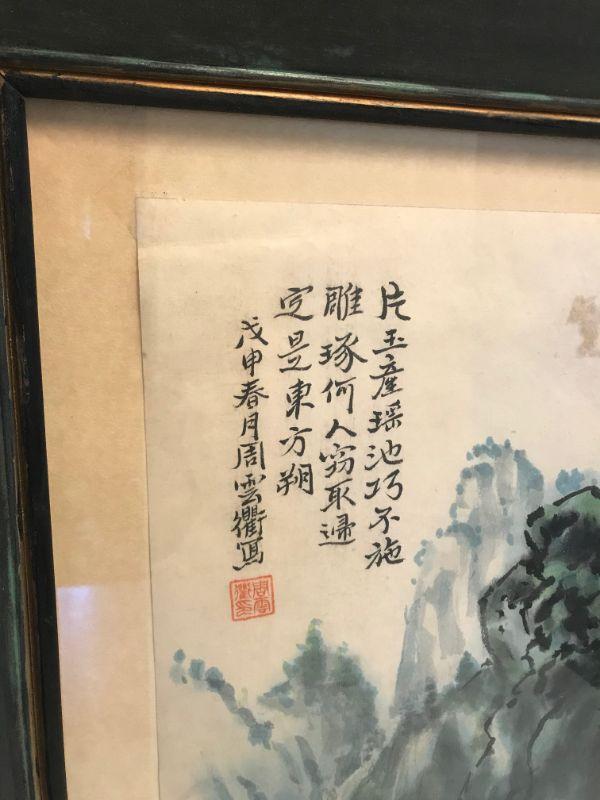 片玉產瑤池巧不施
雕琢何人窃取歸
定是東方朔
戊申春月周雲衢寫